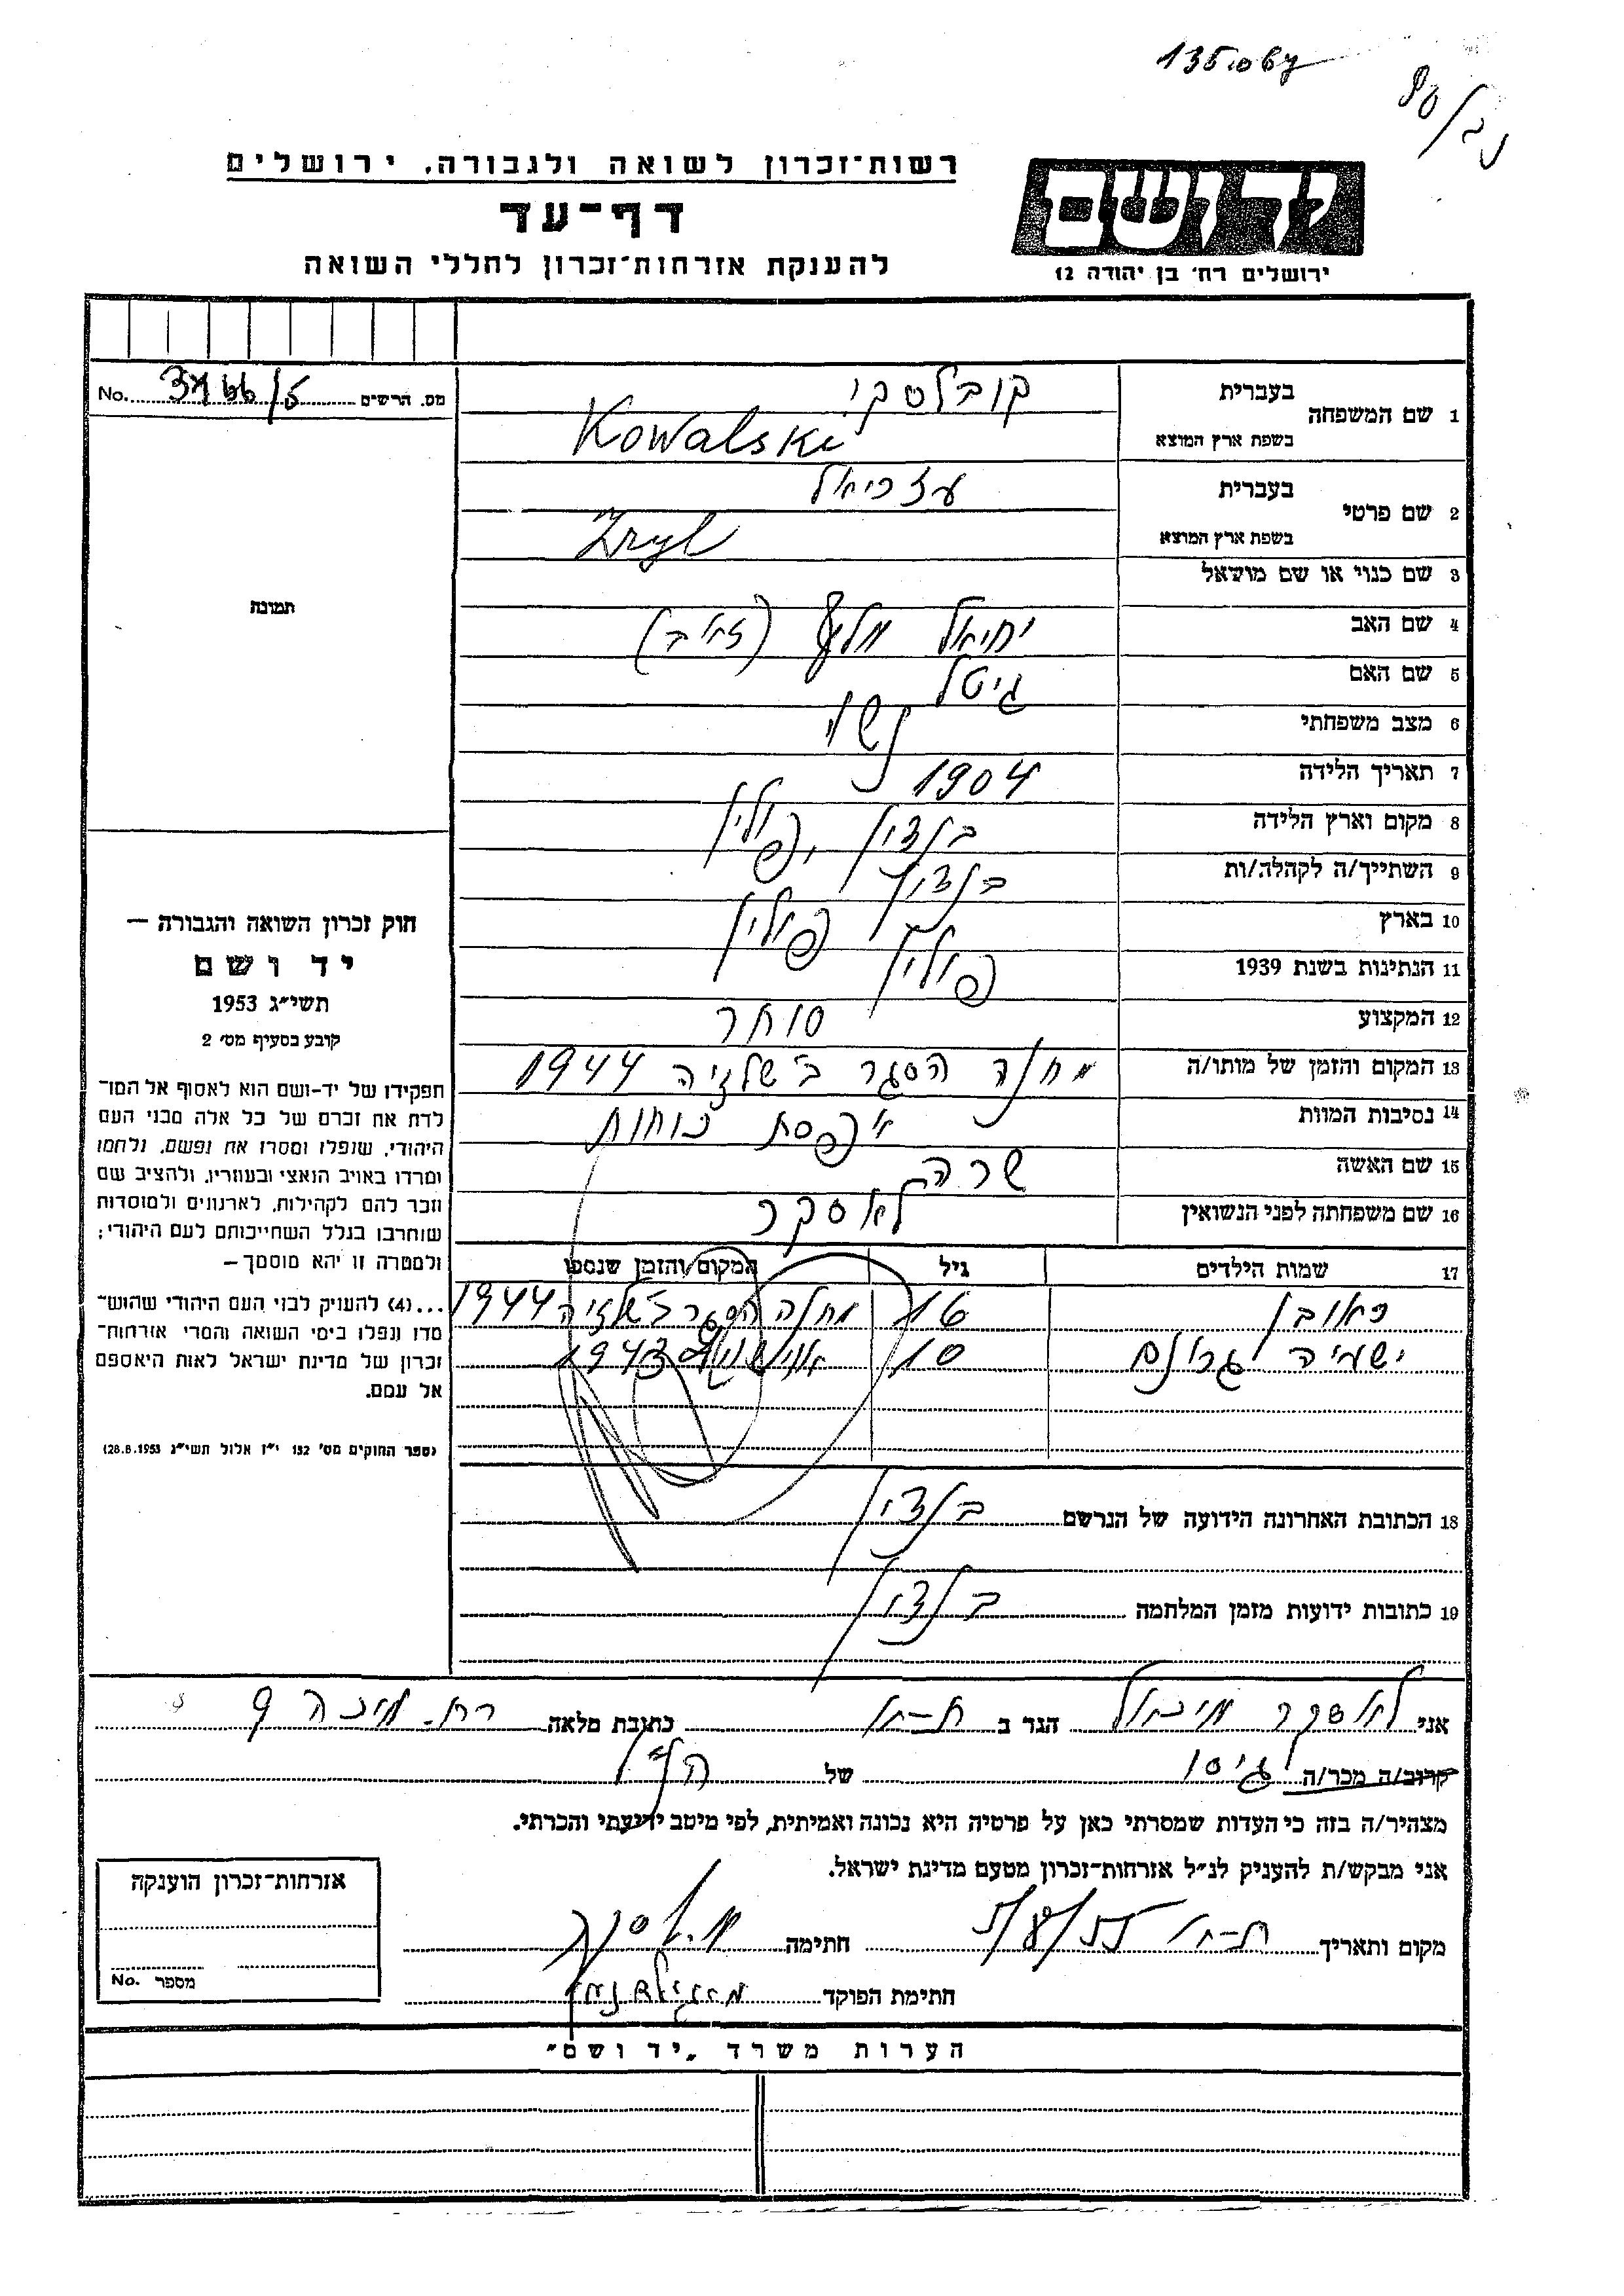 135067
רשות־זכרון לשואה ולגבורה, ירושלים
יד ושם
דף־עד
להענקת אזרחות־זכרון לחללי השואה
ירושלים רח' בן יהודה 12
מס. הרשים No. 3766/5
1 שם המשפחה בעברית קובלסקי
בשפת ארץ המוצא Kowalski
2 שם פרטי בעברית עזריאל
בשפת ארץ המוצא Zryl
3 שם כנוי או שם מושאל
תמונה
4 שם האב יחיאל (זאב)
5 שם האם גיטל
6 מצב משפחתי נשוי
7 תאריך הלידה 1904
8 מקום וארץ הלידה בנדין, פולין
9 השתייך/ה לקהלה/ות בנדין
10 בארץ פולין
11 הנתינות בשנת 1939 פולין
12 המקצוע סוחר
13 המקום והזמן של מותו/ה מחנה הסגר בשלזיה 1944
14 נסיבות המוות אפסת כוחות
15 שם האשה שרה
16 שם משפחתה לפני הנשואין לאסקר
17 שמות הילדים גיל המקום והזמן שנספו
ראובן 16 מחנה הסגר בשלזיה 1944
ישעיה גרונם 10 אושויץ 1943
18 הכתובת האחרונה הידועה של הנרשם בנדין
19 כתובות ידועות מזמן המלחמה בנדין
חוק זכרון השואה והגבורה —
יד ושם
תשי״ג 1953
קובע בסעיף מס' 2
תפקידו של יד-ושם הוא לאסוף אל המו־
לדת את זכרם של כל אלה מבני העם
היהודי, שנפלו ומסרו את נפשם, נלחמו
ומרדו באויב הנאצי ובעוזריו, ולהציב שם
וזכר להם לקהילות, לארגונים ולמוסדות
שחרבו בגלל השתייכותם לעם היהודי;
ולמטרה זו יהא מוסמך —
...(4) להעניק לבני העם היהודי שהוש־
מדו ונפלו בימי השואה והמרי אזרחות־
זכרון של מדינת ישראל לאות היאספם
אל עמם.
(ספר החוקים מס' 132 י״ז אלול תשי״ג 28.8.1953)
אני לאסקר מיכאל הגר ב ת-א כתובת מלאה רח. מיכה 9
קרוב/ה מכר/ה גיסו של הנ״ל
מצהיר/ה בזה כי העדות שמסרתי כאן על פרטיה היא נכונה ואמיתית, לפי מיטב ידיעתי והכרתי.
אני מבקש/ת להעניק לנ״ל אזרחות־זכרון מטעם מדינת ישראל.
מקום ותאריך ת-א חתימה מ. לסקר
חתימת הפוקד
אזרחות־זכרון הוענקה
מספר No.
הערות משרד „יד ושם״